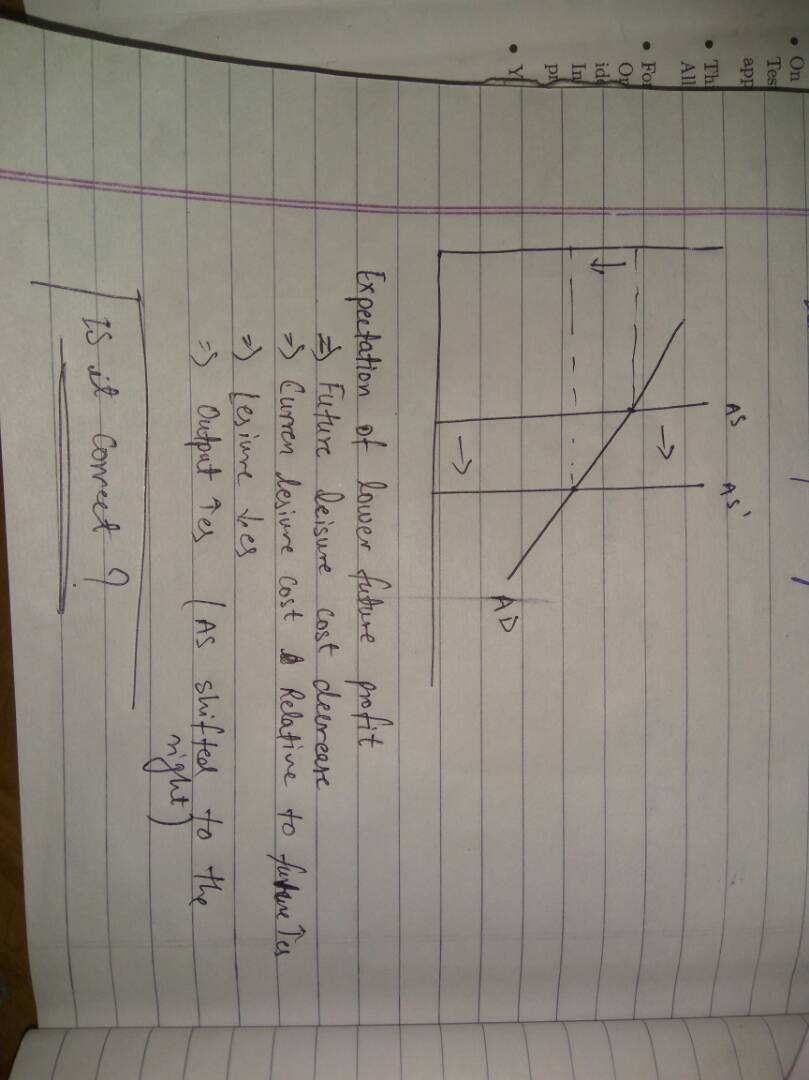 • On
Tes
app
• Thi
All
• For
On
ide
In
pr
• Y
AS
AS'
AD
Expectation of lower future profit
=> Future leisure cost decrease
=> Curren lesiure cost Relative to future ↑es
=> Lesiure ↓es
=> Output ↑es (AS shifted to the
right)
Is it correct ?